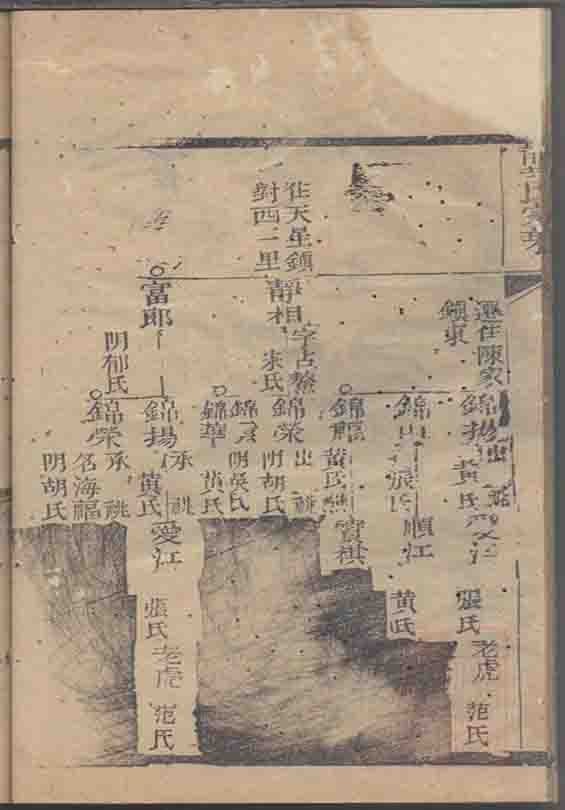 氏家
遷住陳家
鎮東
錦揚出祧
黃氏
愛江
張氏
老虎
范氏
錦
張氏
順江
黃氏
錦
黃氏
寶祺
住天星鎮
對西二里
靜相
字占鰲
朱氏
錦榮出祧
明胡氏
錦
明吳氏
錦華
黃氏
富郎
明郁氏
錦揚承祧
黃氏
愛江
張氏
老虎
范氏
錦榮承祧
名海福
明胡氏